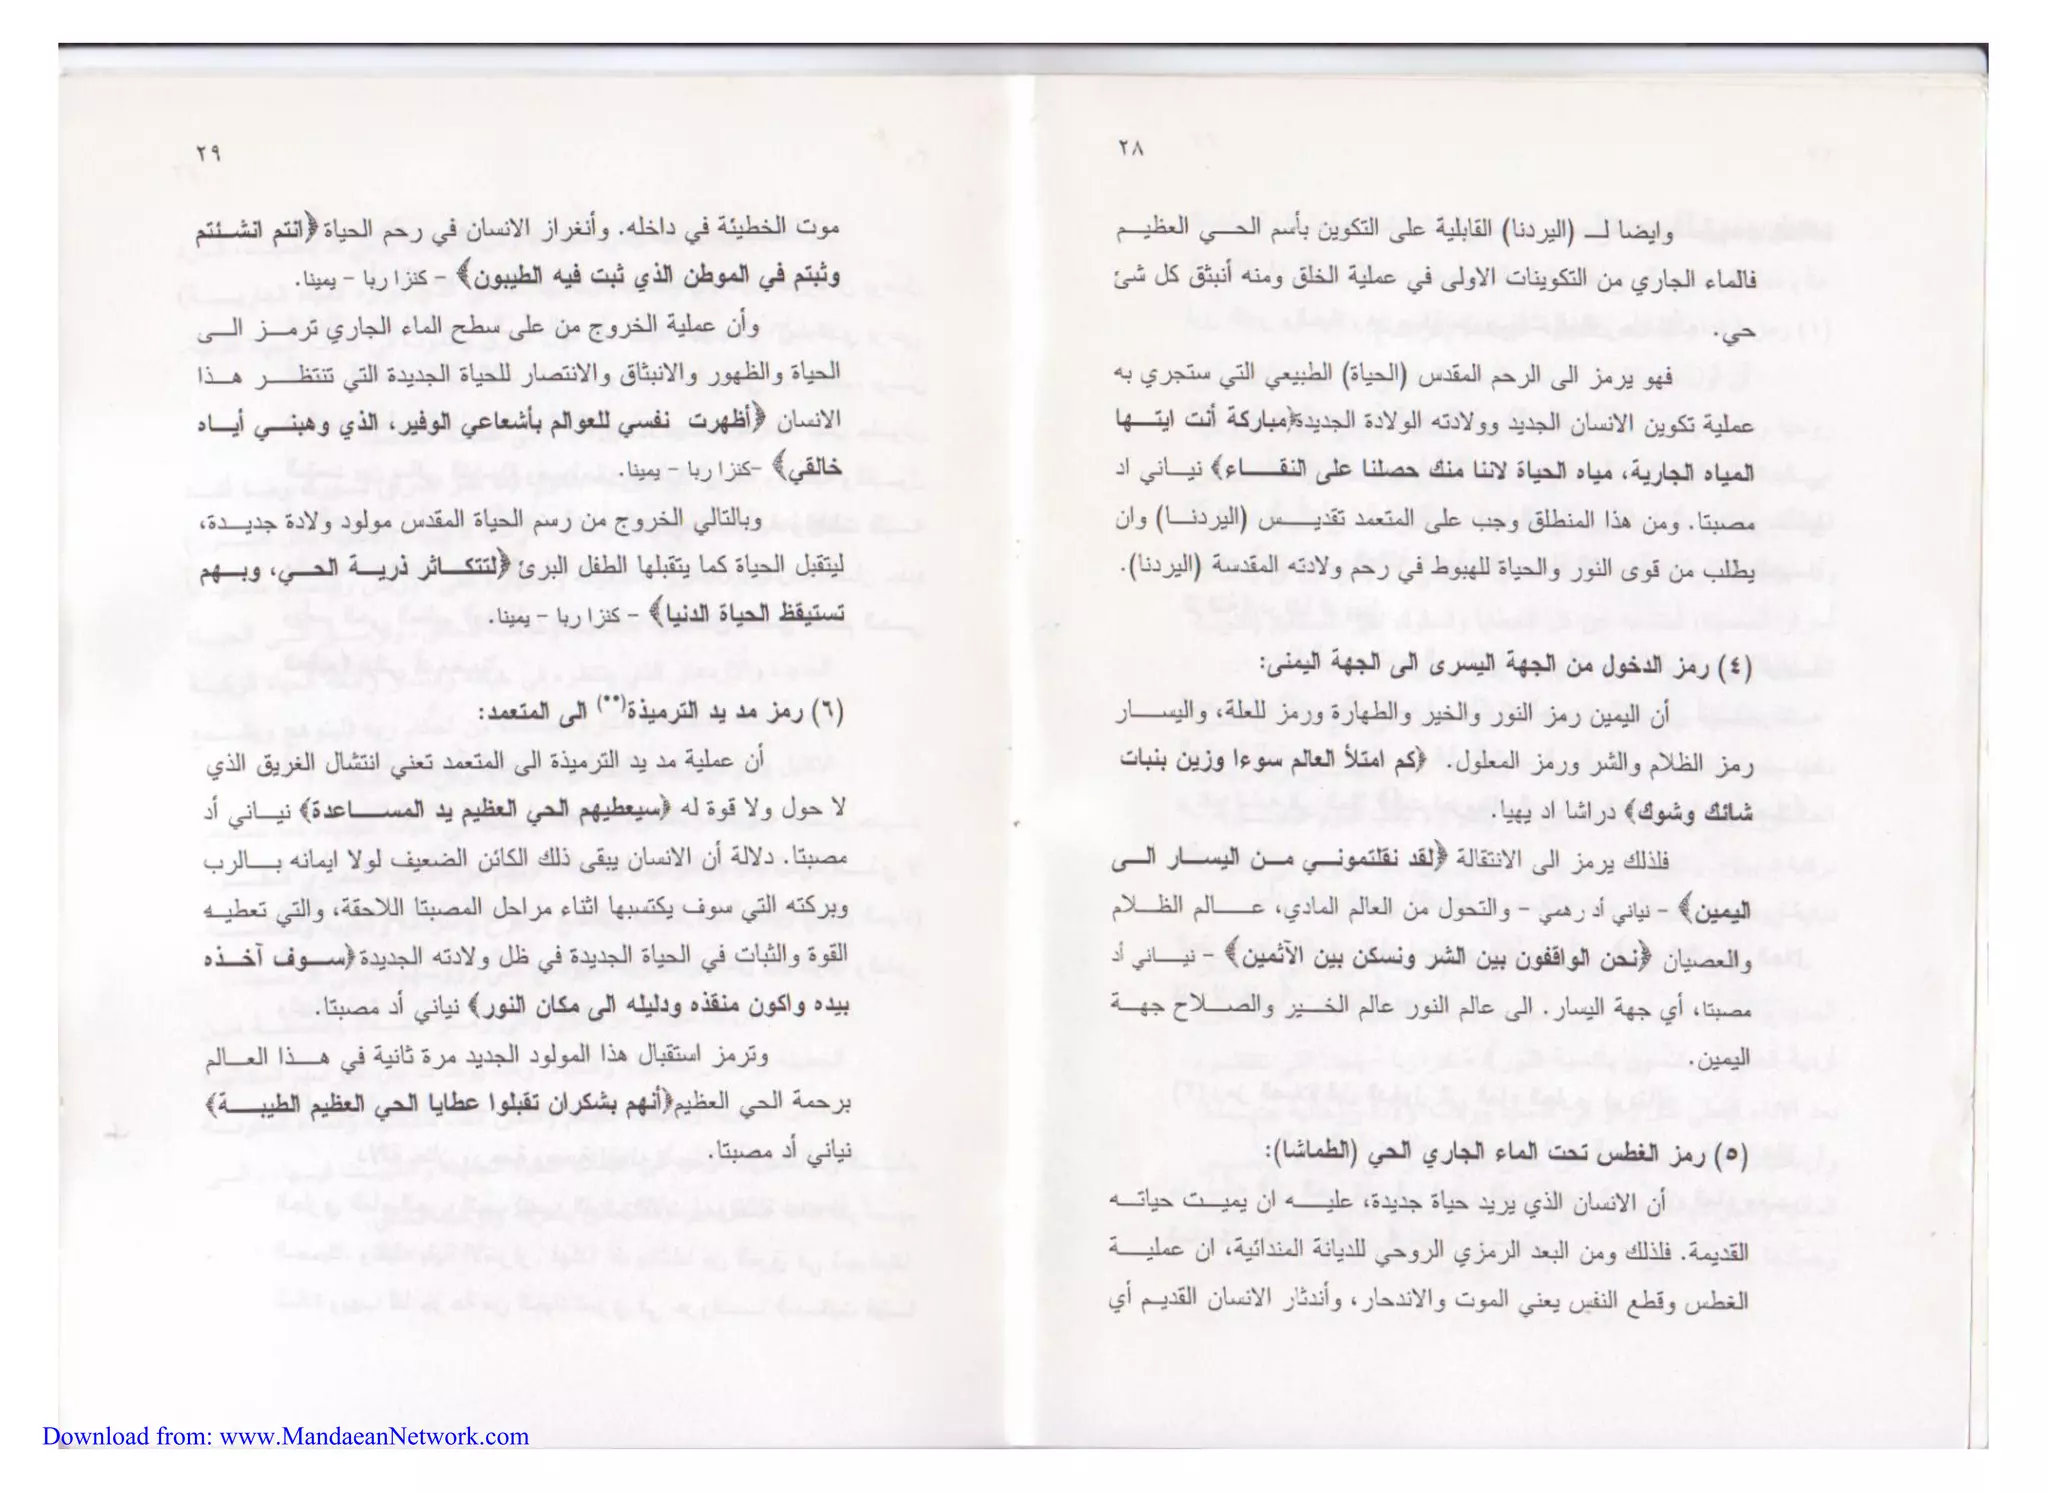 ٢٨
وايضا لـ (اليردنا) القابلية على التكوين بأسم الحي العظيم
فالماء الجاري من التكوينات الاولى في عملية الخلق ومنه أنبثق كل شئ
حي.
فهو يرمز الى الرحم المقدس (الحياة) الطبيعي التي ستجري به
عملية تكوين الانسان الجديد وولادته الولادة الجديدة﴿مباركة أنت ايتها
المياه الجارية، مياه الحياة لاننا منك حصلنا على النقاء﴾ نياني اد
مصبتا. ومن هذا المنطلق وجب على المتعمد تقديس (اليردنا) وان
يطلب من قوى النور والحياة للهبوط في رحم ولادته المقدسة (اليردنا).
(٤) رمز الدخول من الجهة اليسرى الى الجهة اليمنى:
أن اليمين رمز النور والخير والطهارة ورمز للعلة، واليسار
رمز الظلام والشر ورمز المعلول. ﴿كم امتلأ العالم سوءا وزين بنبات
شائك وشوك﴾ دراشا اد يهيا.
فلذلك يرمز الى الانتقالة ﴿لقد نقلتموني من اليسار الى
اليمين﴾ - نياني أد رهمي - والتحول من العالم المادي، عالم الظلام
والعصيان ﴿نحن الواقفون بين الشر ونسكن بين الآثمين﴾ - نياني أد
مصبتا، أي جهة اليسار. الى عالم النور عالم الخير والصلاح جهة
اليمين.
(٥) رمز الغطس تحت الماء الجاري الحي (الطماشا):
أن الانسان الذي يريد حياة جديدة، عليه ان يميت حياته
القديمة. فلذلك ومن البعد الرمزي الروحي للديانة المندائية، ان عملية
الغطس وقطع النفس يعني الموت والاندحار، وأندثار الانسان القديم أي
٢٩
موت الخطيئة في داخله. وأنغراز الانسان في رحم الحياة﴿انتم انشئتم
وثبتم في الموطن الذي ثبت فيه الطيبون﴾ - كنزا ربا - يمينا.
وأن عملية الخروج من على سطح الماء الجاري ترمز الى
الحياة والظهور والانبثاق والانتصار للحياة الجديدة التي تنتظر هذا
الانسان ﴿أظهرت نفسي للعوالم بأشعاعي الوفير، الذي وهبني أياه
خالقي﴾ -كنزا ربا - يمينا.
وبالتالي الخروج من رسم الحياة المقدس مولود، ولادة جديدة،
ليتقبل الحياة كما يتقبلها الطفل البرئ ﴿لتتكاثر ذرية الحي، وبهم
تستيقظ الحياة الدنيا﴾ - كنزا ربا - يمينا.
(٦) رمز مد يد الترميذة(**) الى المتعمد:
أن عملية مد يد الترميذة الى المتعمد تعني انتشال الغريق الذي
لا حول ولا قوة له ﴿سيعطيهم الحي العظيم يد المساعدة﴾ نياني أد
مصبتا. دلالة أن الانسان يبقى ذلك الكائن الضعيف لولا ايمانه بالرب
وبركته التي سوف يكتسبها اثناء مراحل المصبتا الاحقة، والتي تعطيه
القوة والثبات في الحياة الجديدة في ظل ولادته الجديدة﴿سوف آخذه
بيده واكون منقذه ودليله الى مكان النور﴾ نياني أد مصبتا.
وترمز استقبال هذا المولود الجديد مرة ثانية في هذا العالم
برحمة الحي العظيم﴿أنهم بشكران تقبلوا عطايا الحي العظيم الطيبة﴾
نياني أد مصبتا.
Download from: www.MandaeanNetwork.com